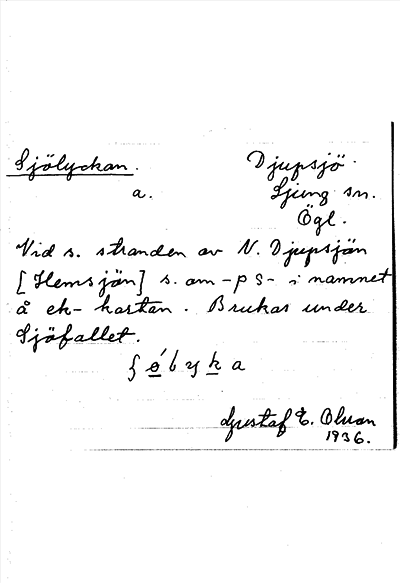 Sjölyckan. Djupsjö.
a. Ljung sn.
Ögl.
Vid s. stranden av N. Djupsjön
[Hemsjön] s. om -ps- i namnet
å ek-kartan. Brukas under
Sjöfallet.
Gustaf E. Olsson
1936.